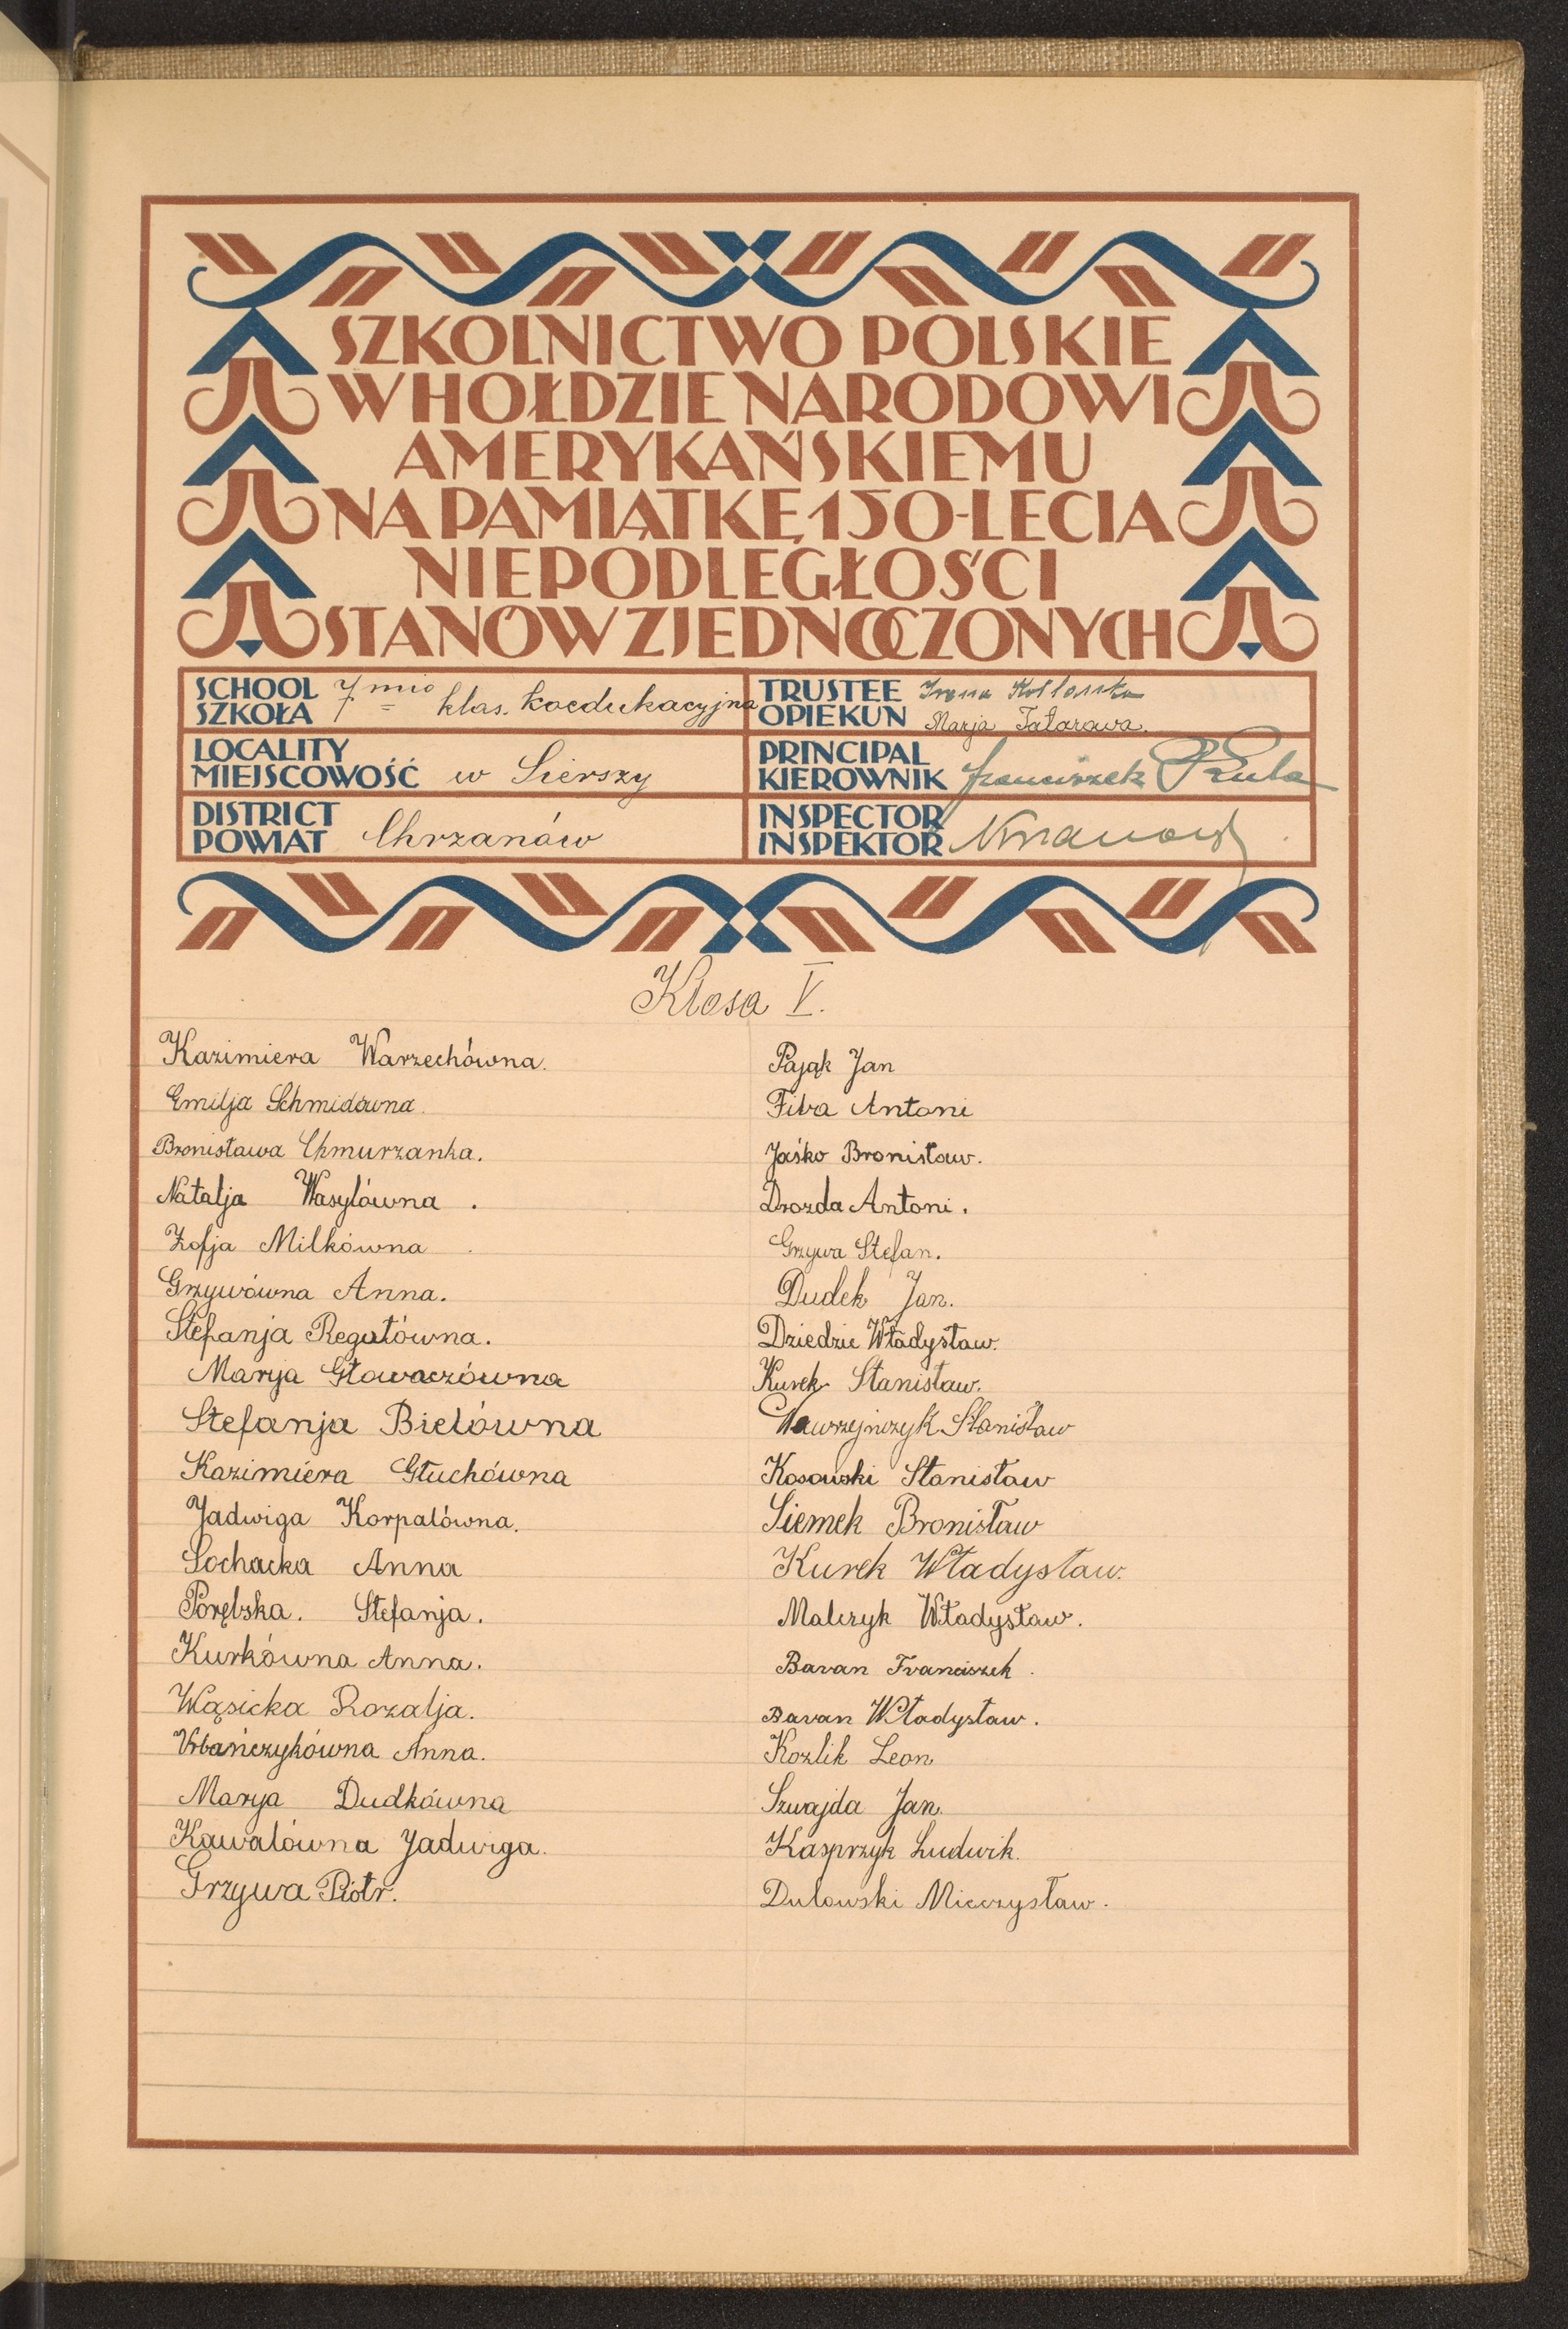 SZKOLNICTWO POLSKIE
W HOŁDZIE NARODOWI
AMERYKAŃSKIEMU
NA PAMIĄTKĘ 150-LECIA
NIEPODLEGŁOŚCI
STANÓW ZJEDNOCZONYCH
SCHOOL
SZKOŁA 7 mio klas. koedukacyjna
TRUSTEE Irena
OPIEKUN Marja Tatarowa.
LOCALITY
MIEJSCOWOŚĆ w Sierszy
PRINCIPAL
KIEROWNIK Franciszek
DISTRICT
POWIAT Chrzanów
INSPECTOR
INSPEKTOR
Klasa V.
Kazimiera Warzechówna.
Emilja Schmidówna.
Bronisława Chmurzanka.
Natalja Wasylówna.
Zofja Milkówna
Grzywówna Anna.
Stefanja Regułówna.
Marja Głowaczówna
Stefanja Bielówna
Kazimiera Głuchówna
Jadwiga Korpalówna.
Sochacka Anna
Porębska. Stefanja.
Kurkówna Anna.
Wąsicka Rozalja.
Urbańczykówna Anna.
Marja Dudkówna
Kawalówna Jadwiga.
Grzywa Piotr.
Pająk Jan
Fiba Antoni
Jaśko Bronisław.
Drozda Antoni.
Grzywa Stefan.
Dudek Jan.
Dziedzic Władysław.
Kurek Stanisław.
Wawrzyńczyk Stanisław
Kosowski Stanisław
Siemek Bronisław
Kurek Władysław.
Malczyk Władysław.
Baran Franciszek.
Baran Władysław.
Kozlik Leon
Szwajda Jan.
Kasprzyk Ludwik.
Dulowski Mieczysław.